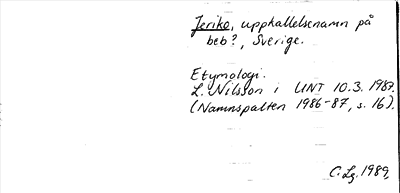 Jeriko, uppkallelsenamn på
beb?, Sverige.
Etymologi.
L. Nilsson i UNT 10.3.1987.
(Namnspalten 1986-87, s. 16).
C. Lg. 1989.